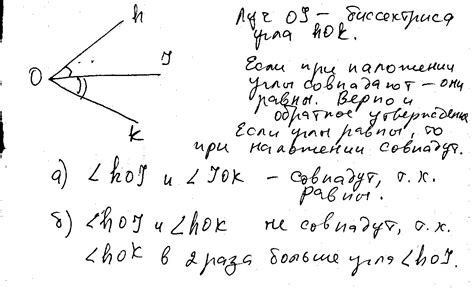 h
Луч OJ – биссектриса
угла hOK.
O
J
K
Если при наложении
углы совпадают – они
равны. Верно и
обратное утверждение
Если углы равны, то
при наложении совпадут.
а) ∠hOJ и ∠JOK – совпадут, т.к.
равны.
б) ∠hOJ и ∠hOK не совпадут, т.к.
∠hOK в 2 раза больше угла ∠hOJ.